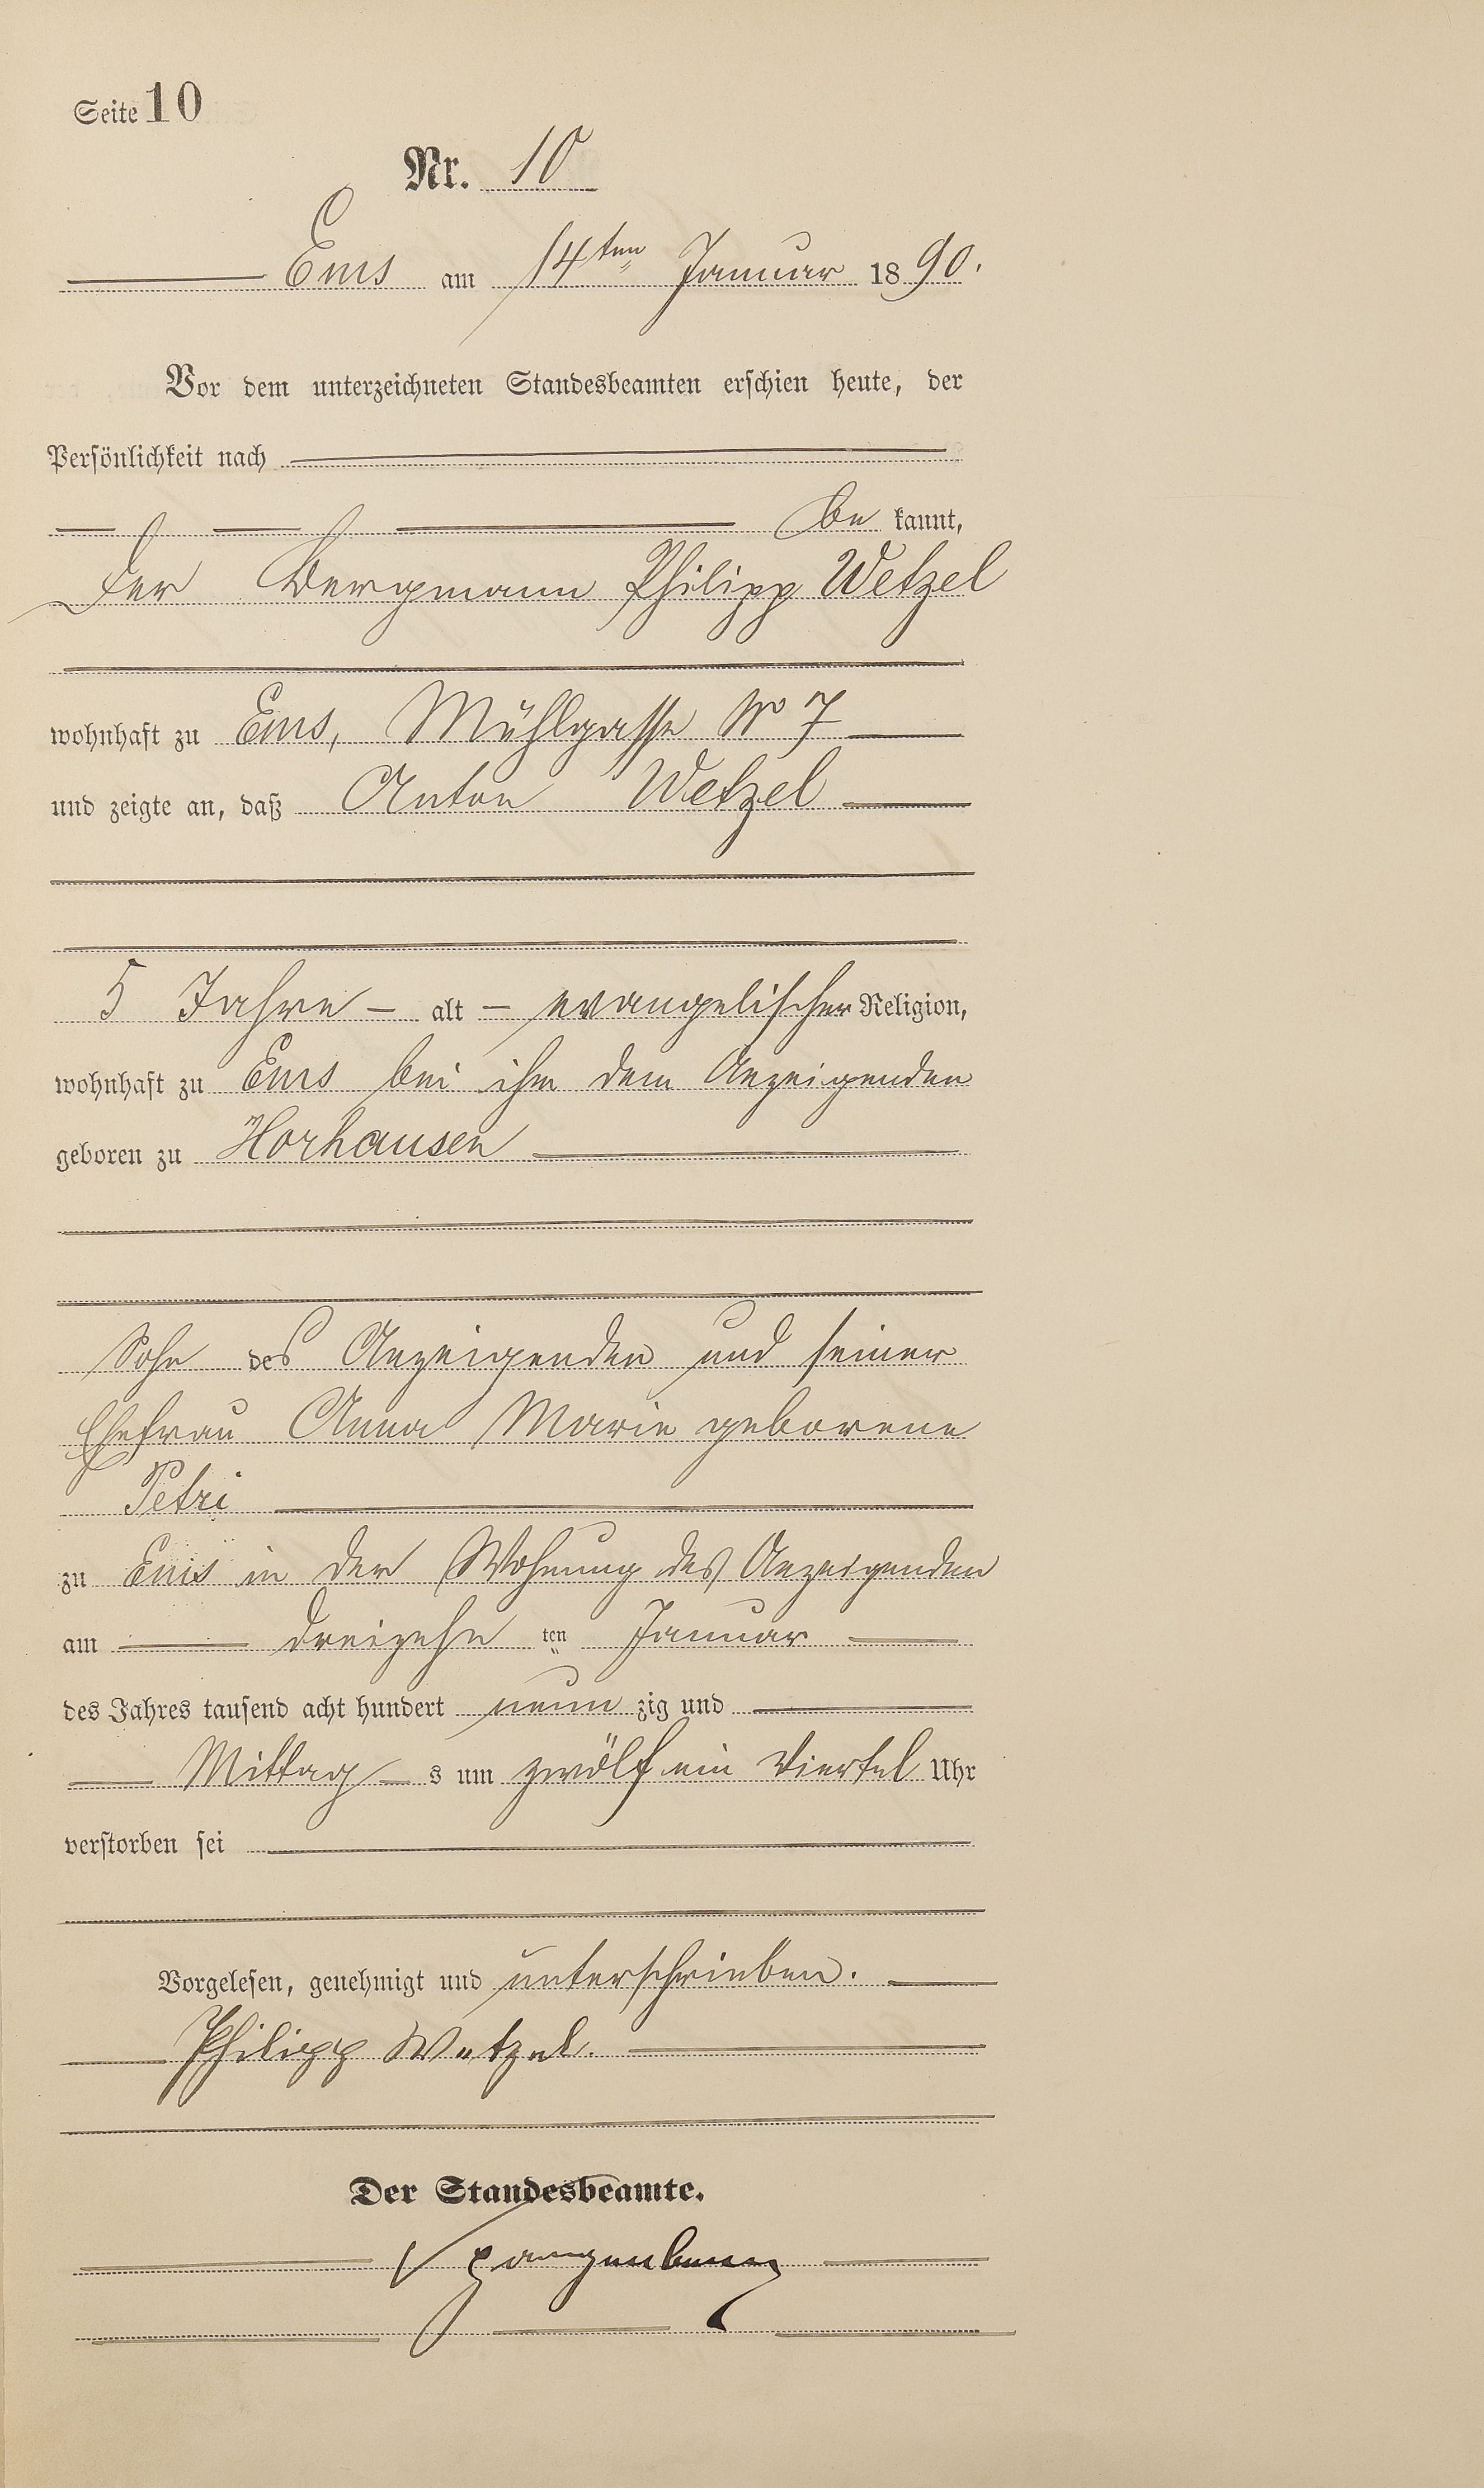 Seite 10
Nr. 10
Ems am 14ten Januar 1890.
Vor dem unterzeichneten Standesbeamten erschien heute, der
Persönlichkeit nach
be kannt,
der Bergmann Philipp Wetzel
wohnhaft zu Ems, Mühlgasse No 7
und zeigte an, daß Anton Wetzel
5 Jahre alt evangelischer Religion,
wohnhaft zu Ems bei ihm dem Anzeigenden
geboren zu Horhausen
Sohn des Anzeigenden und seiner
Ehefrau Anna Marie geborene
Petri
zu Ems in der Wohnung des Anzeigenden
am dreizehn ten Januar
des Jahres tausend acht hundert neun zig und
Mittag s um zwölf ein Viertel Uhr
verstorben sei
Vorgelesen, genehmigt und unterschrieben.
Philipp Wetzel.
Der Standesbeamte.